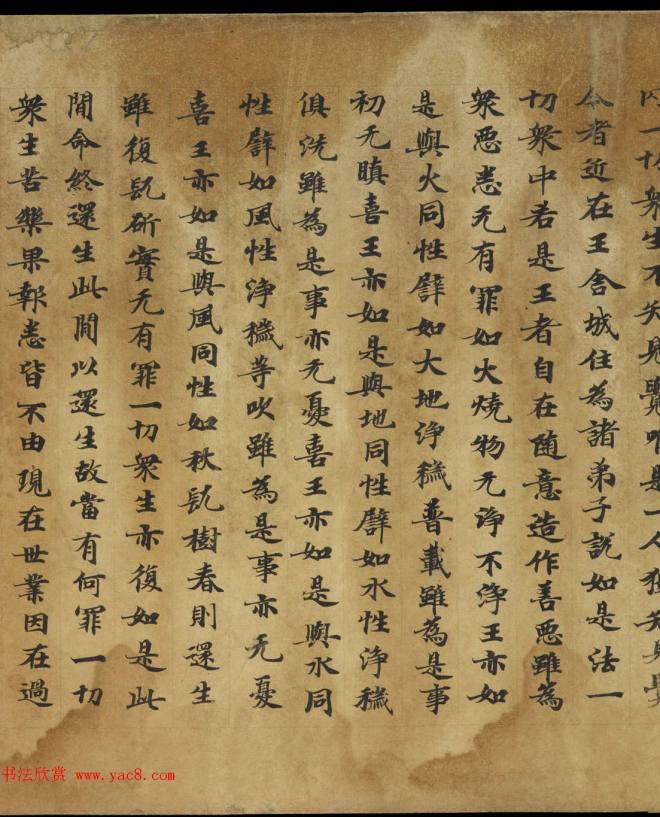 内一切衆生不知見覺唯是一人獨知見覺
今者近在王舍城住為諸弟子說如是法一
切衆中若是王者自在隨意造作善惡雖為
衆惡悉无有罪如火燒物无淨不淨王亦如
是與火同性譬如大地淨穢普載雖為是事
初无瞋喜王亦如是與地同性譬如水性淨穢
俱洗雖為是事亦无憂喜王亦如是與水同
性譬如風性淨穢等吹雖為是事亦无憂
喜王亦如是與風同性如秋髡樹春則還生
雖復髡斫實无有罪一切衆生亦復如是此
間命終還生此間以還生故當有何罪一切
衆生苦樂果報悉皆不由現在世業因在過
书法欣赏 www.yac8.com